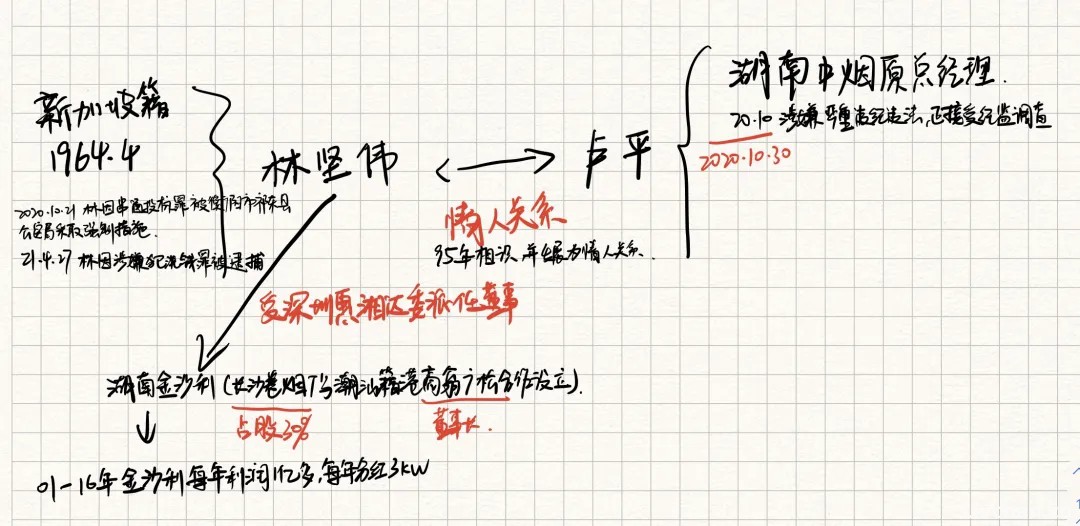 新加坡籍
1964.4
2020.10.21 林因串通投标罪被衡阳市祁东县
公安局采取强制措施.
21.4.27 林因涉嫌犯洗钱罪被逮捕
林坚伟 ⟷ 卢平
情人关系
95年相识,并发展为情人关系.
湖南中烟原总经理.
20.10 涉嫌严重违纪违法,正接受纪监调查
2020.10.30
受深圳 湘达委派任董事
湖南金沙利(长沙卷烟厂与潮汕籍港商翁广松合作设立).
占股30%
董事长.
01-16年金沙利每年利润1亿多,每年分红3kw